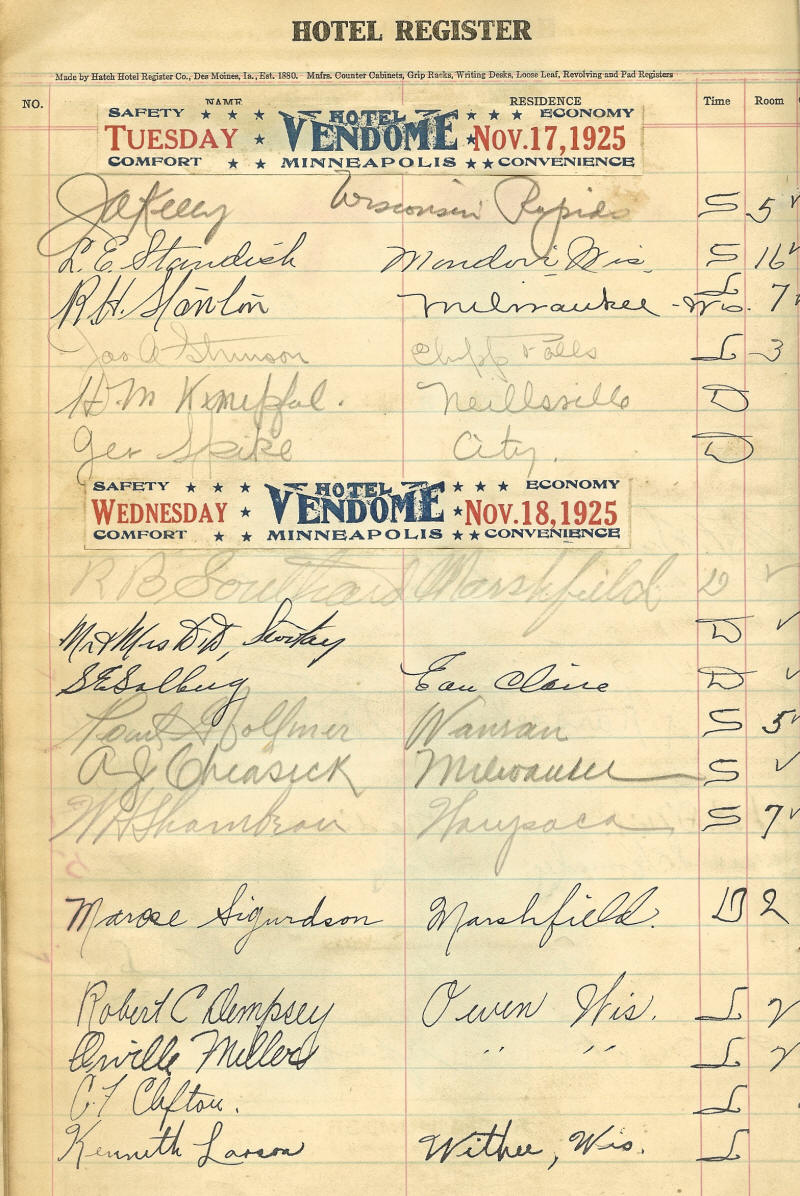 HOTEL REGISTER
Made by Hatch Hotel Register Co., Des Moines, Ia., Est. 1880. Mnfrs. Counter Cabinets, Grip Racks, Writing Desks, Loose Leaf, Revolving and Pad Registers
NO. NAME RESIDENCE Time Room
SAFETY HOTEL ECONOMY
TUESDAY VENDOME Nov. 17, 1925
COMFORT MINNEAPOLIS CONVENIENCE
J A Kelley Wisconsin Rapids S 5
L. E. Standish Mondovi Wis. S 16
R H. Stanton Milwaukee - Wis. L 7
Jas A Stinson Chipp Falls L 3
H M Neillsville D
Geo Spike City. D
SAFETY HOTEL ECONOMY
WEDNESDAY VENDOME Nov. 18, 1925
COMFORT MINNEAPOLIS CONVENIENCE
R B Southard Marshfield D
Mr & Mrs D D, D
S E Solberg Eau Claire D
Paul Wausau S 5
A J Cheasick Milwaukee S
W H Shambeau Waupaca S 7
Sigurdson Marshfield. D 2
Robert C Dempsey Owen Wis. L 2
Orville Millers " " L 2
C. F Clifton. L
Kenneth Larson Withee, Wis. L